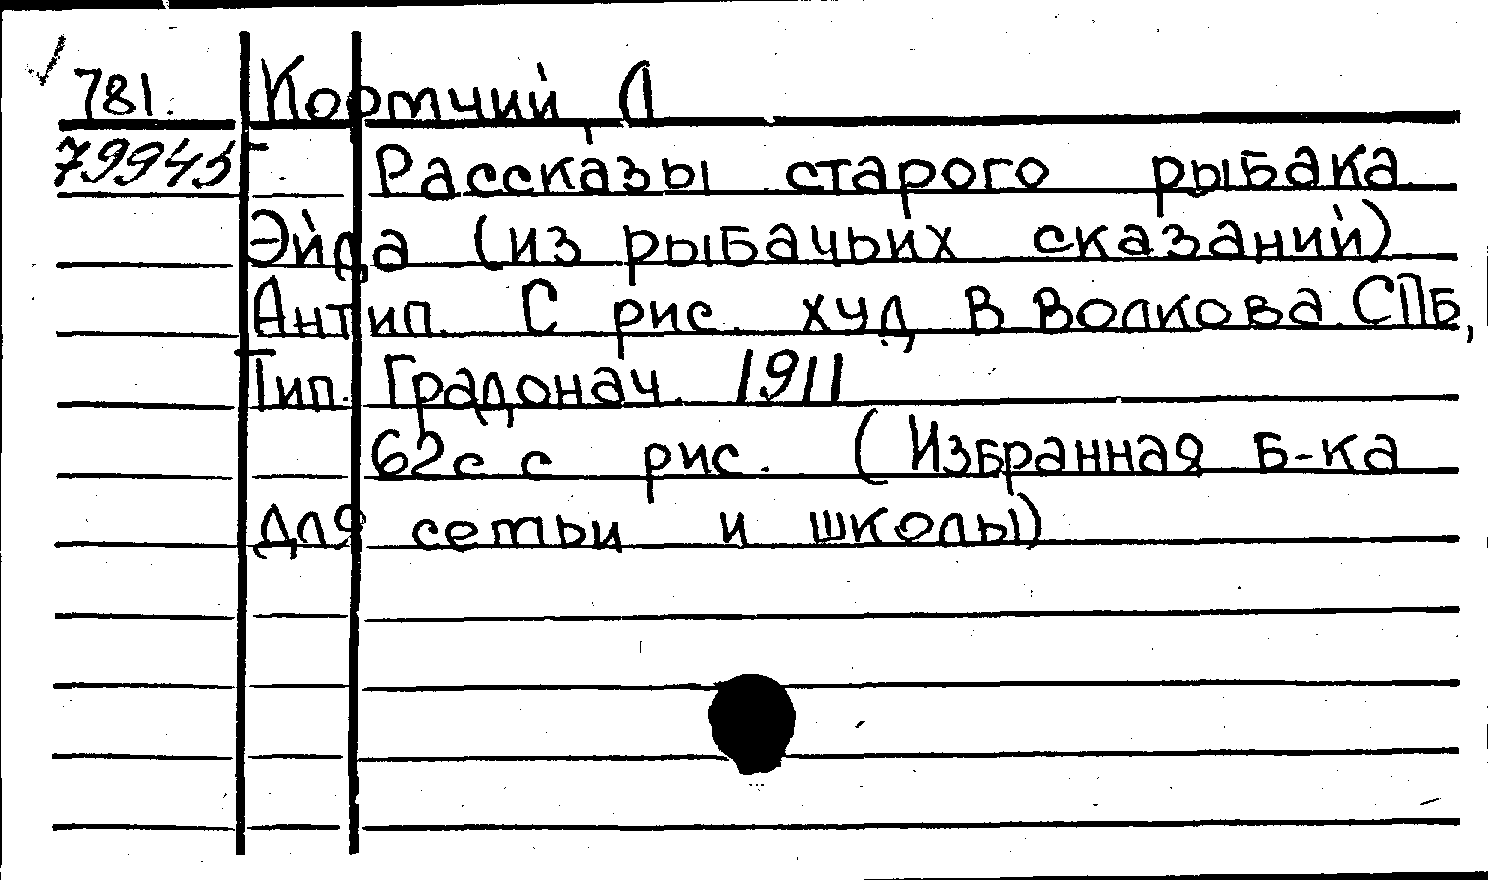 781. Кортчий, Л
79945 Рассказы старого рыбака
Эйда (из рыбачьих сказаний)
Антип. С рис. худ В Волкова. СПБ,
Тип. Градонач. 1911
62с с рис. (Избранная Б-ка
для сетьи и школы)